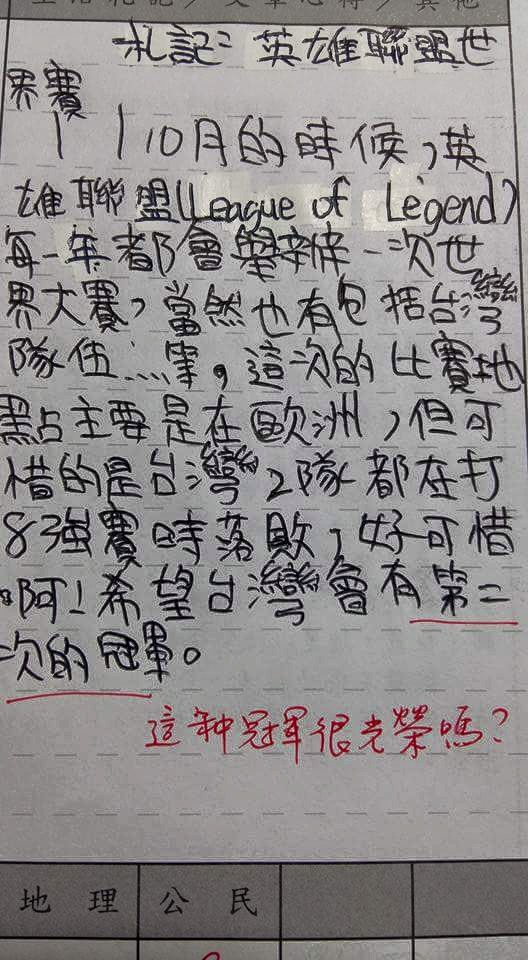 生活札記／文章心得／其他
札記：英雄聯盟世
界賽
10月的時候，英
雄聯盟(League of Legend)
每一年都會舉辦一次世
界大賽，當然也有包括台灣
隊伍……等，這次的比賽地
點主要是在歐洲，但可
惜的是台灣2隊都在打
8強賽時落敗，好可惜
啊！希望台灣會有第二
次的冠軍。
這种冠軍很光榮嗎？
地理 公民